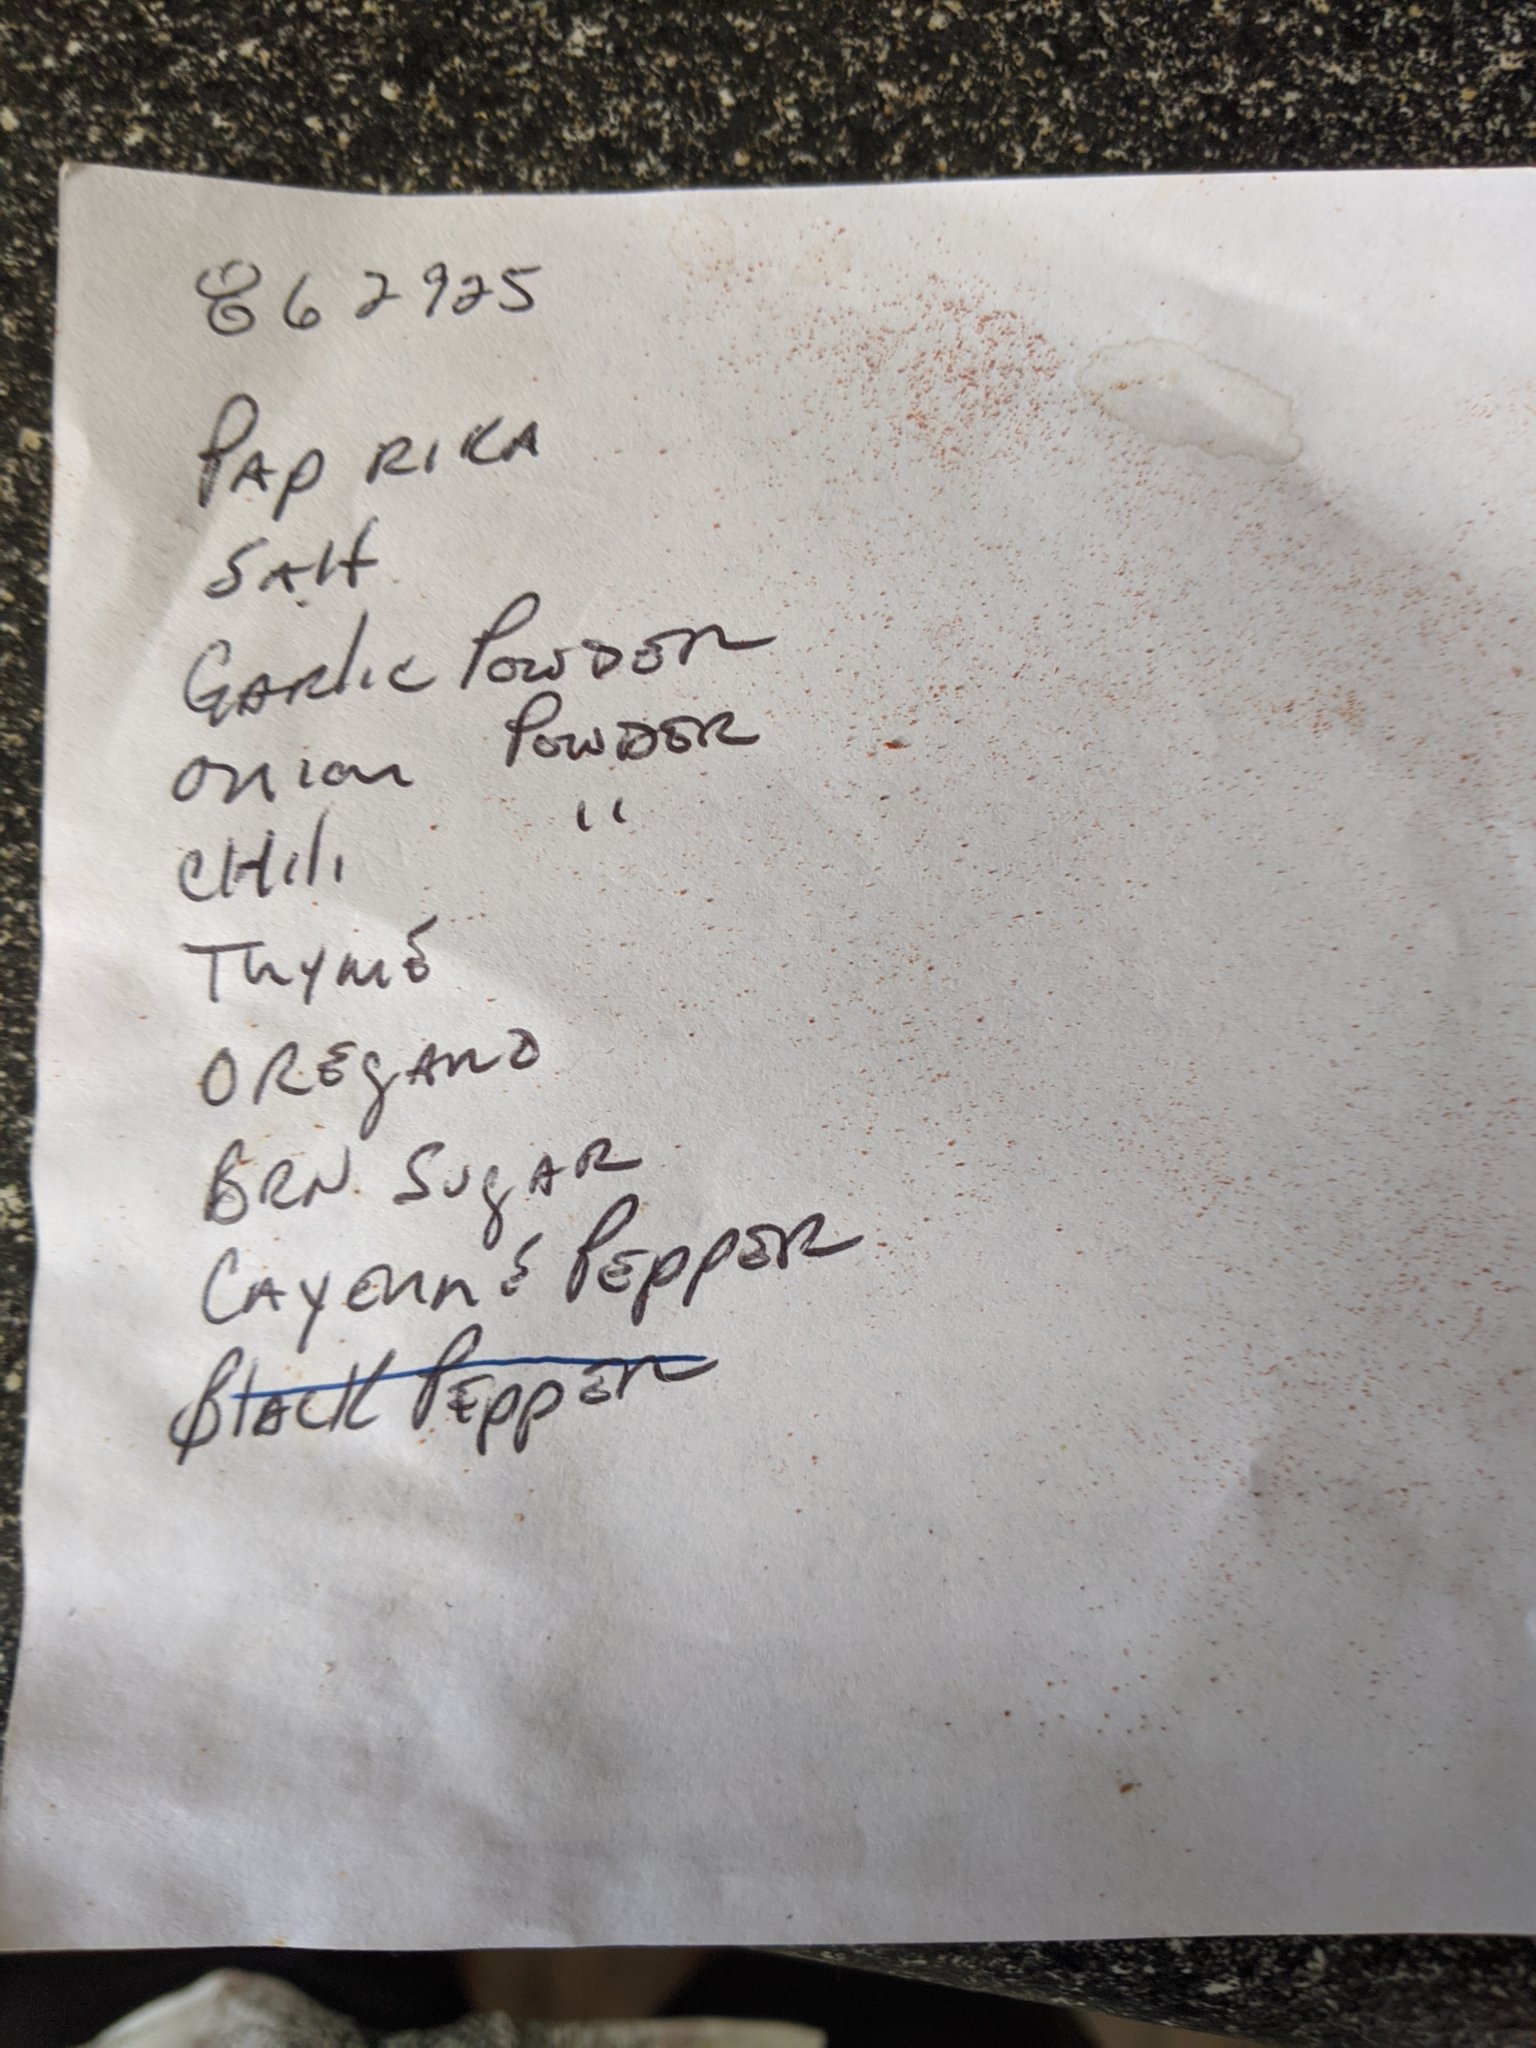 862925
PAPRIKA
SAlt
GARlic POWDER
Onion POWDER
CHili "
THYME
OREgANO
BRN SUgAR
CAYENNE PEPPER
BlACK PEPPER